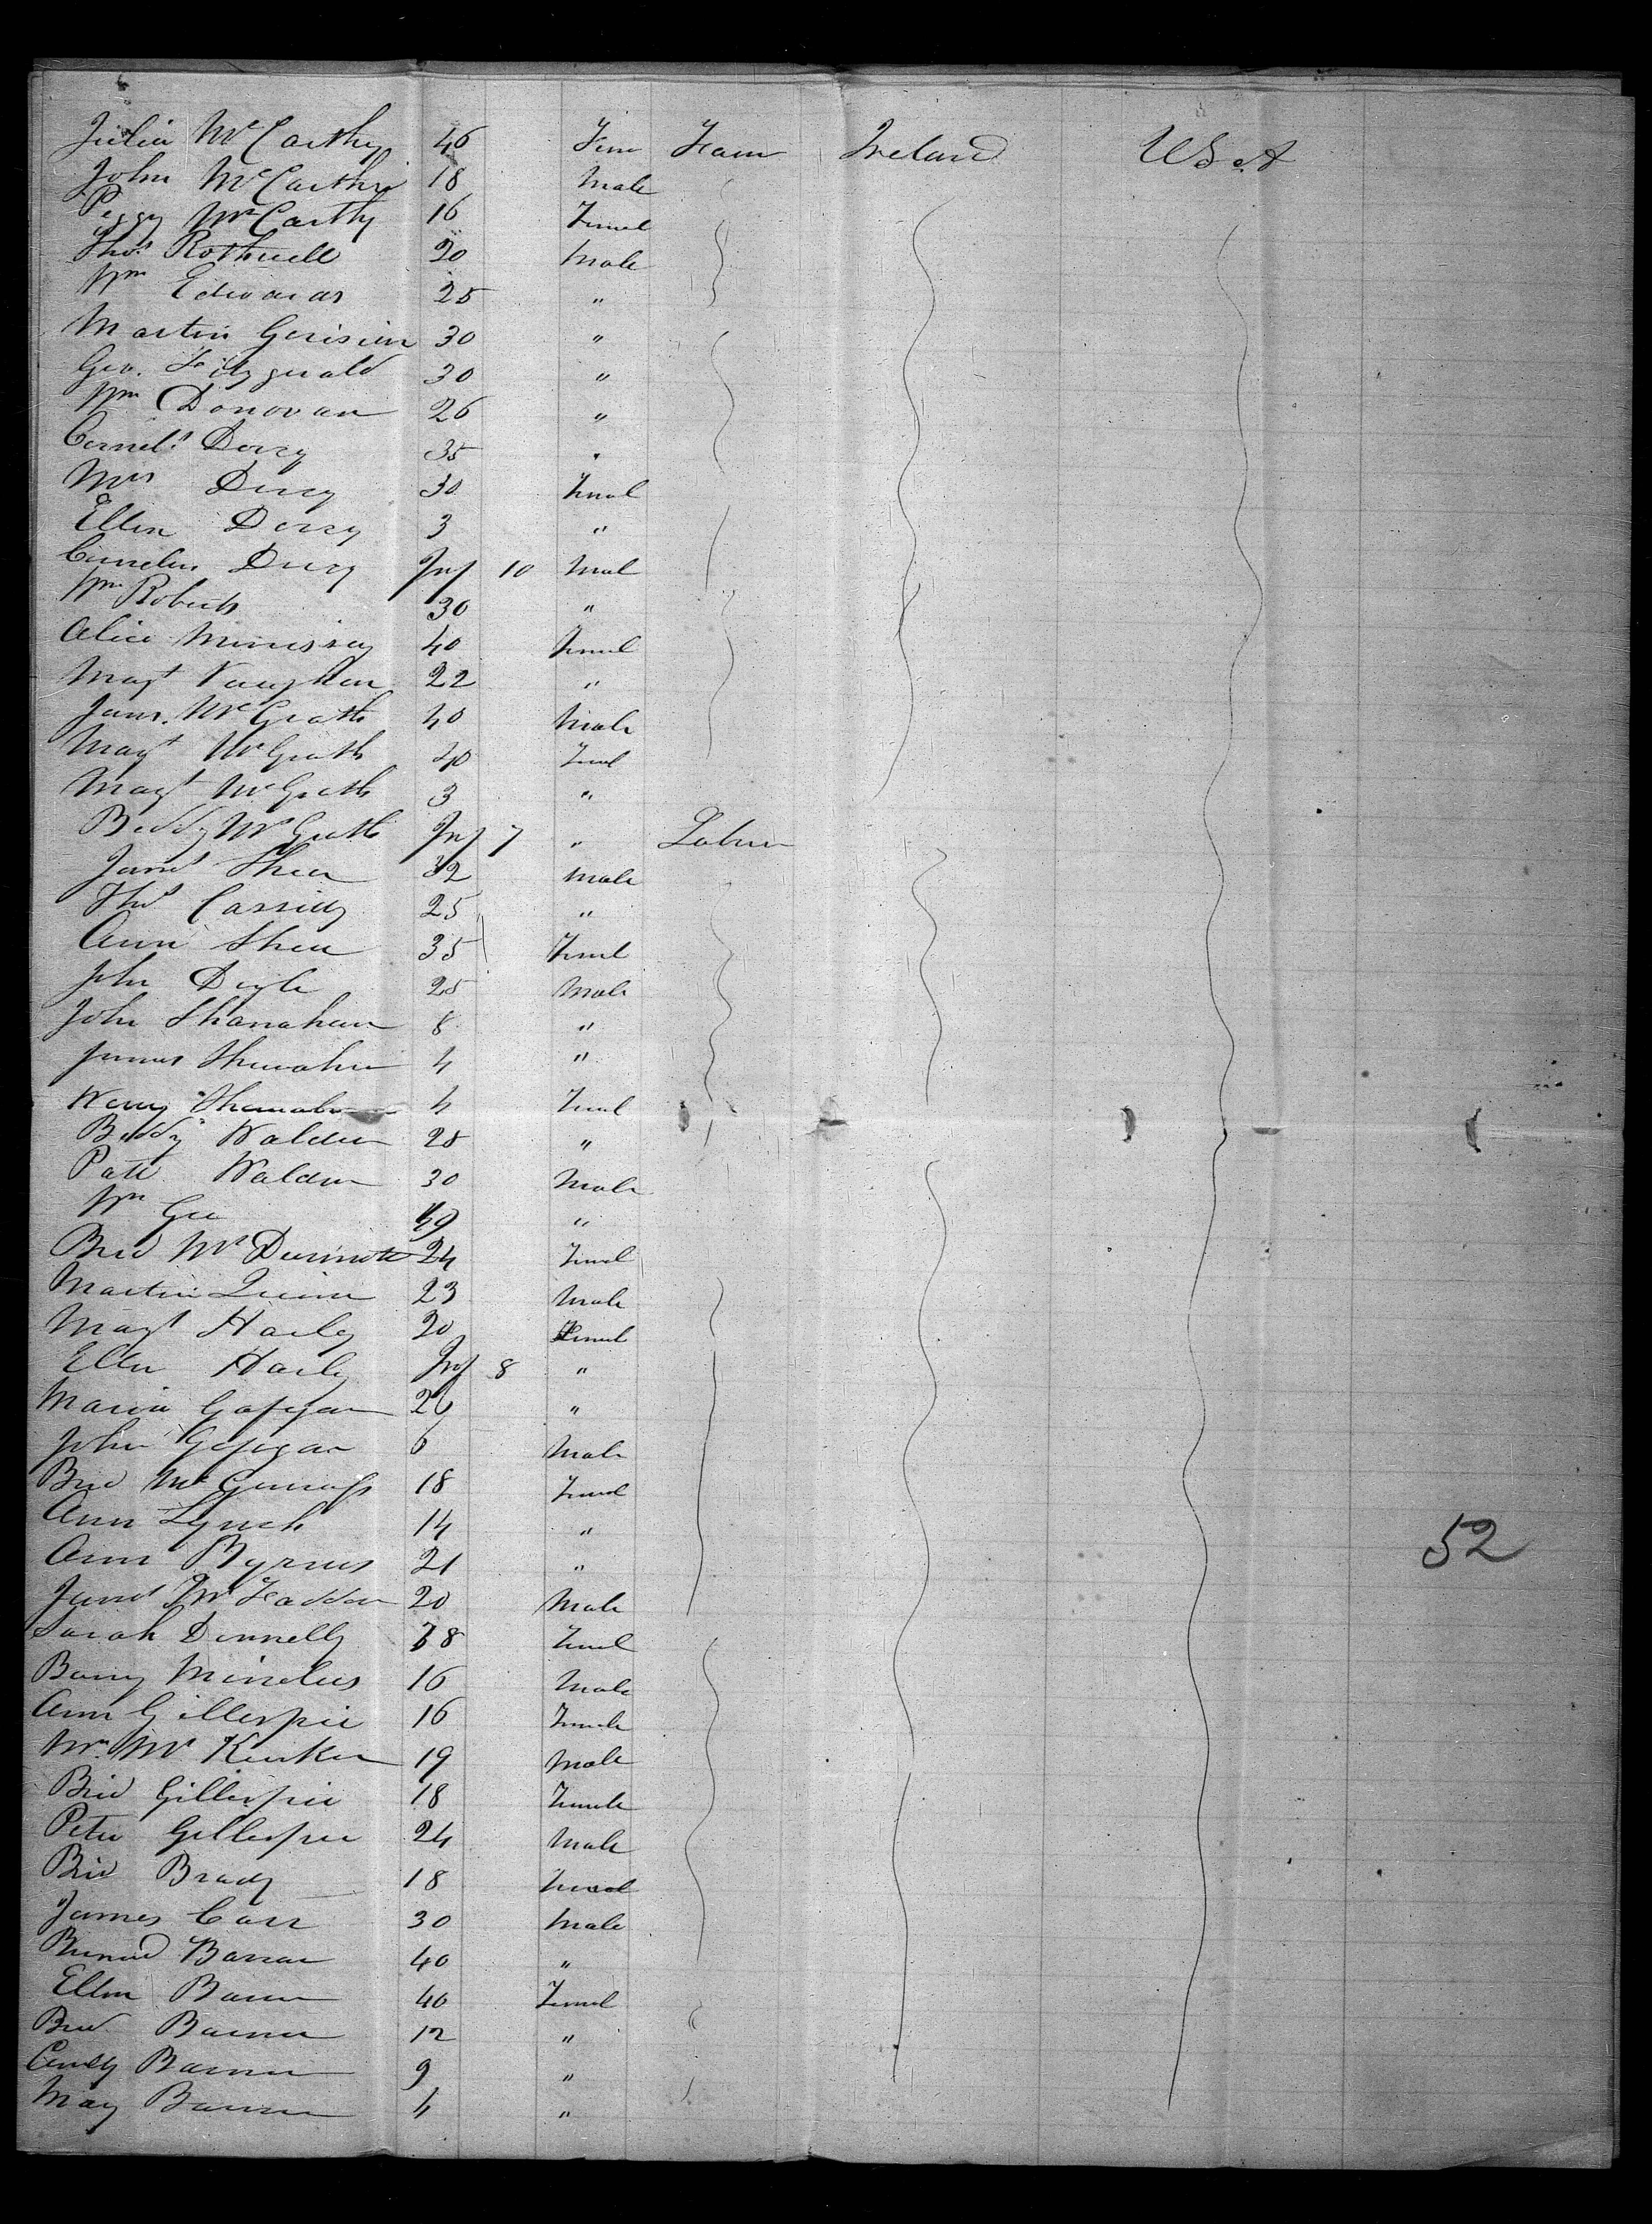 Julia McCarthy 46 Fem Farm Ireland USA
John McCarthy 18 Male
Peggy McCarthy 16 Femal
Thos Rothwell 20 Male
Wm Edwards 25 "
Martin 30 "
Geo. Fitzgerald 30 "
Wm Donovan 26 "
Cornels Dorcy 35 "
Mrs Dorcy 30 Femal
Ellen Dorcy 3 "
Cornelius Dorcy Inf 10 Mal
Wm Roberts 30 "
Alice Morrissey 40 Femal
Magt Vaughan 22 "
James McGrath 40 Male
Magt McGrath 40 Femal
Magt McGrath 3 "
Biddy McGrath Inf 7 " Labor
James Shea 32 Male
Thos Cassidy 25 "
Ann Shea 35 Femal
John Doyle 25 Male
John Shanahan 8 "
James Shanahan 4 "
Shanahan 4 Femal
Biddy Waldren 28 "
Patt Waldren 30 Male
Wm Gee 49 "
Brid McDermott 24 Femal
Martin Quinn 23 Male
Magt Haily 20 Femal
Ellen Haily Inf 8 "
Maria Gafegan 26 "
John Gafegan 6 Male
Brid 18 Femal
Ann Lynch 14 "
Ann Byrnes 21 "
James McFadden 20 Male
Sarah Donnelly 38 Femal
16 Male
Ann Gillespie 16 Female
Wm Mc 19 Male
Brid Gillespie 18 Female
Peter Gillespie 24 Male
Brid Brady 18 Femal
James Carr 30 Male
Bernard Barron 40 "
Ellen Barron 40 Femal
Brid Barron 12 "
Barron 9 "
Mary Barron 4 "
52